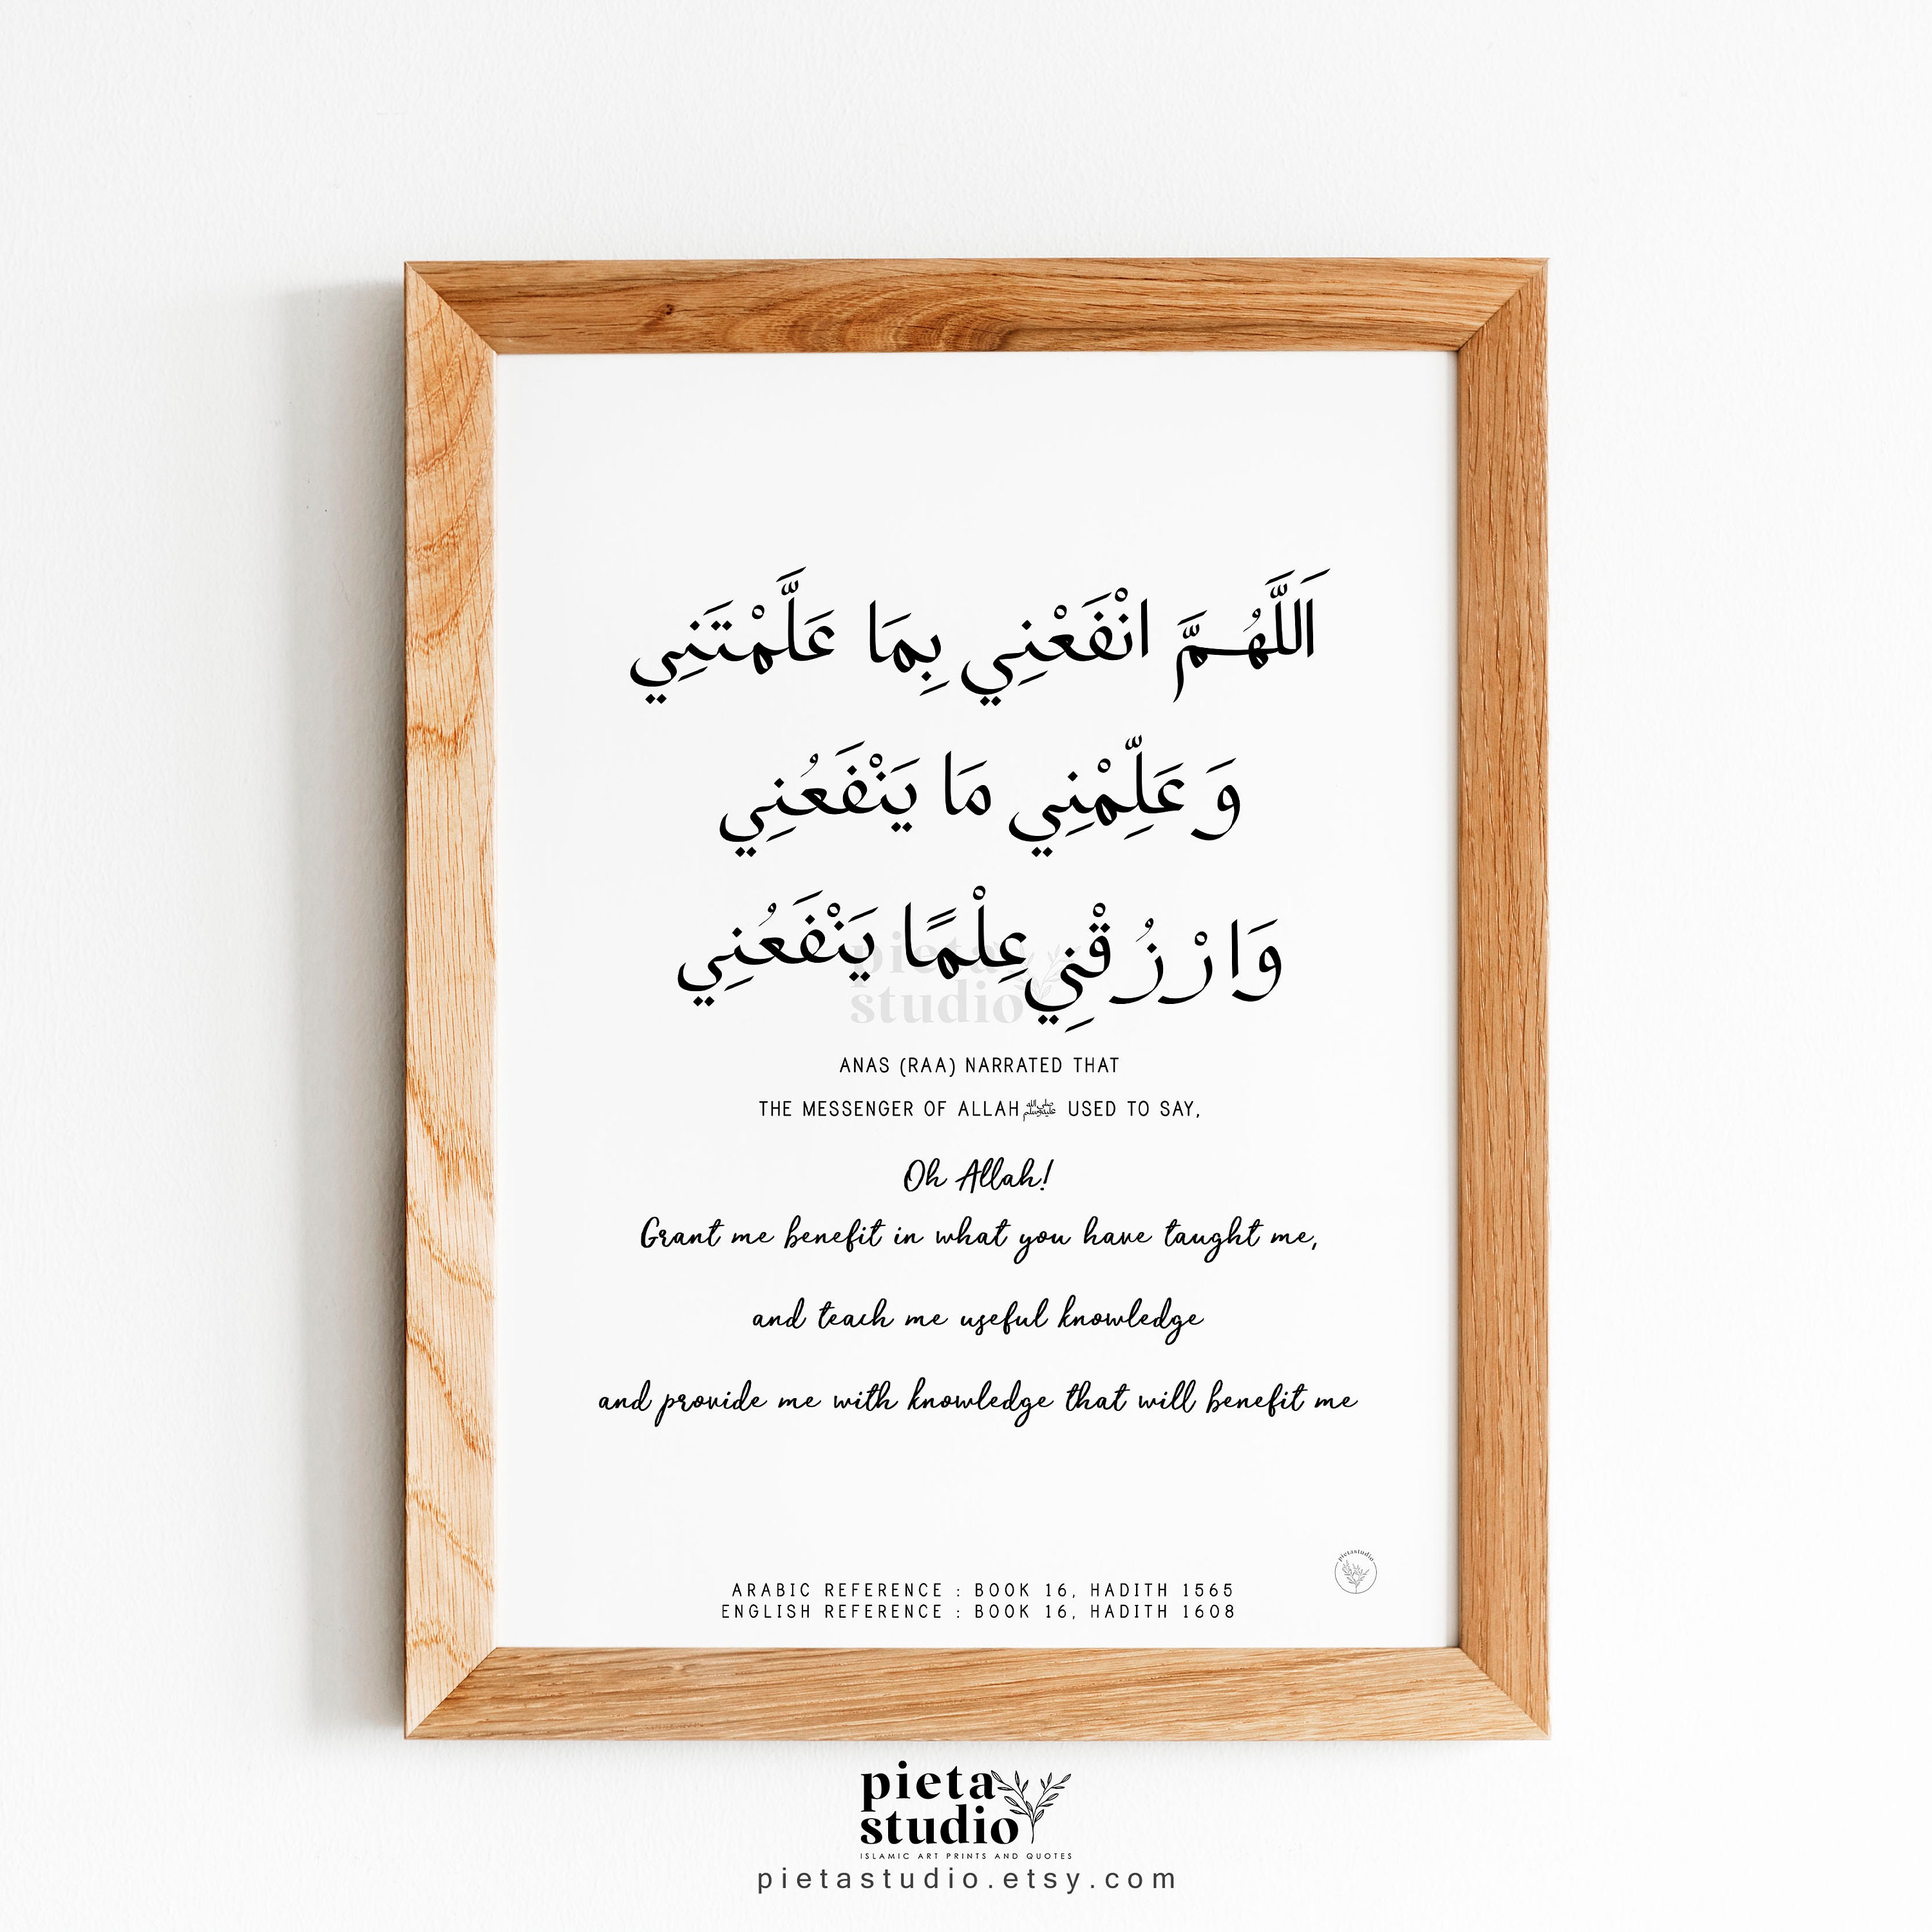 اَللَّهُمَّ انْفَعْنِي بِمَا عَلَّمْتَنِي
وَ عَلِّمْنِي مَا يَنْفَعُنِي
وَارْزُقْنِي عِلْمًا يَنْفَعُنِي
pieta
studio
ANAS (RAA) NARRATED THAT
THE MESSENGER OF ALLAH ﷺ USED TO SAY,
Oh Allah!
Grant me benefit in what you have taught me,
and teach me useful knowledge
and provide me with knowledge that will benefit me
pietastudio
ARABIC REFERENCE : BOOK 16, HADITH 1565
ENGLISH REFERENCE : BOOK 16, HADITH 1608
pieta
studio
ISLAMIC ART PRINTS AND QUOTES
pietastudio.etsy.com